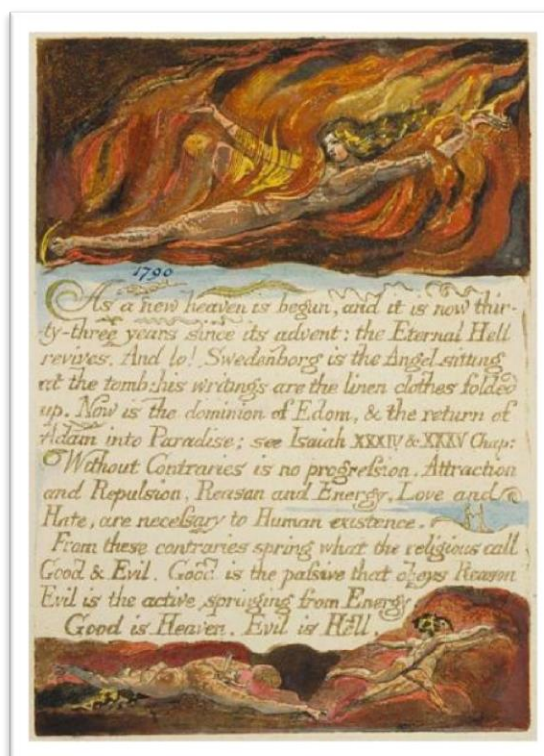 1790
As a new heaven is begun, and it is now thir-
-ty-three years since its advent: the Eternal Hell
revives. And lo! Swedenborg is the Angel sitting
at the tomb: his writings are the linen clothes folded
up. Now is the dominion of Edom, & the return of
Adam into Paradise; see Isaiah XXXIV & XXXV Chap:
Without Contraries is no progreſsion. Attraction
and Repulsion, Reason and Energy, Love and
Hate, are neceſsary to Human existence.
From these contraries spring what the religious call
Good & Evil. Good is the paſsive that obeys Reason
Evil is the active springing from Energy
Good is Heaven. Evil is Hell.